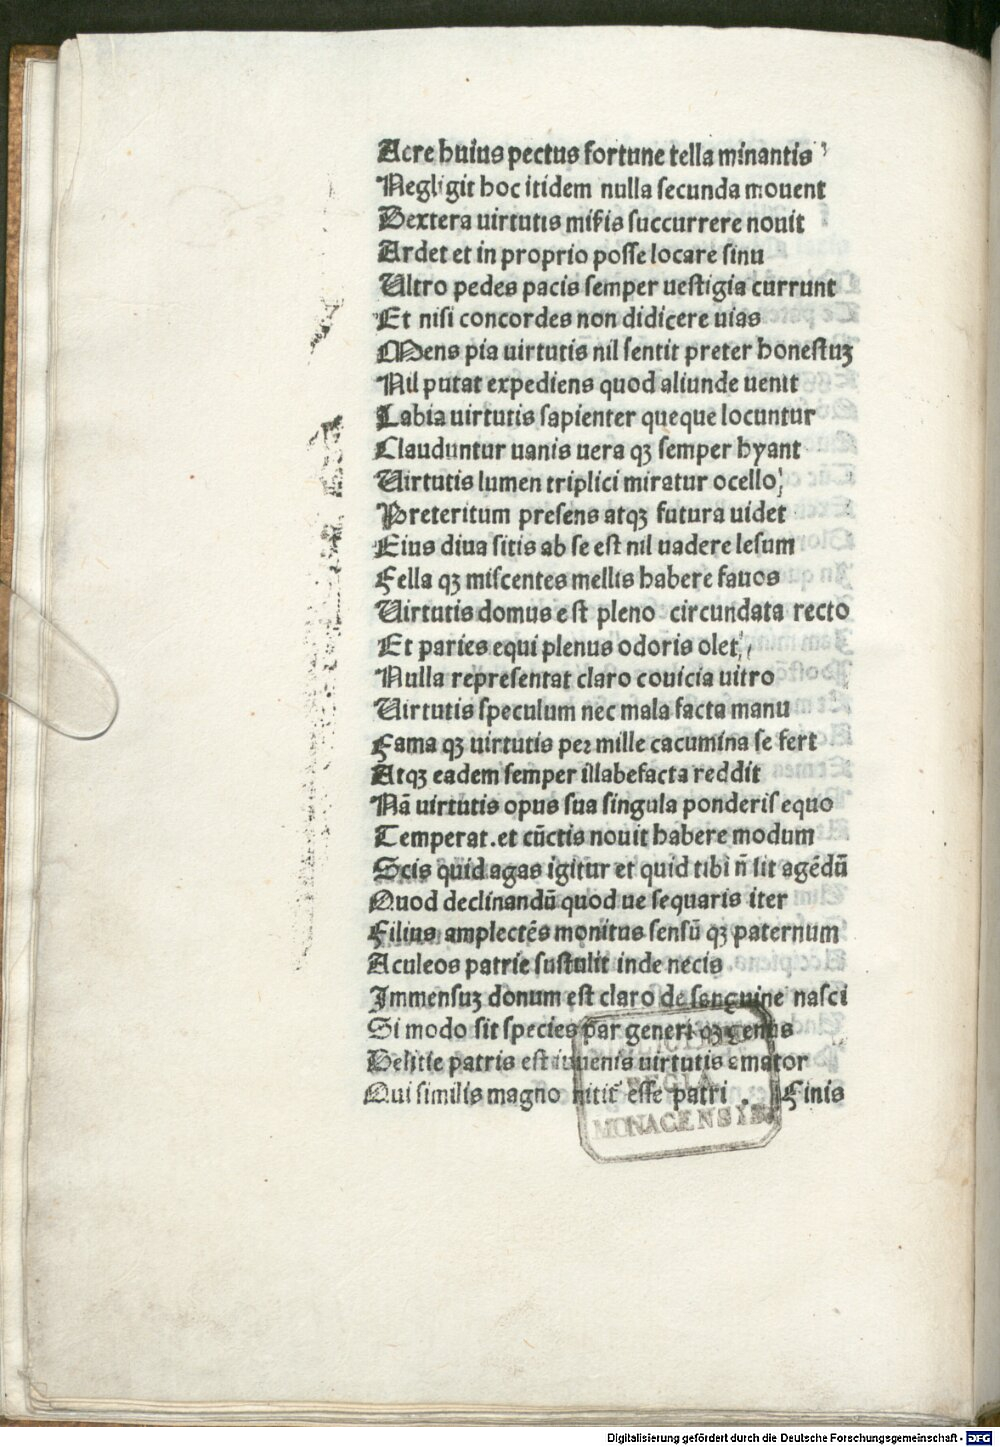 Acre huius pectus fortune tella minantis
Negligit hoc itidem nulla secunda mouent
Dextera uirtutis mis̄is succurrere nouit
Ardet et in proprio posse locare sinu
Ultro pedes pacis semper uestigia currunt
Et nisi concordes non didicere uias
Mens pia uirtutis nil sentit preter honestuꝫ
Nil putat expediens quod aliunde uenit
Labia uirtutis sapienter queque locuntur
Clauduntur uanis uera qꝫ semper hyant
Uirtutis lumen triplici miratur ocello
Preteritum presens atqꝫ futura uidet
Eius diua sitis ab se est nil uadere lesum
Fella qꝫ miscentes mellis habere fauos
Uirtutis domus est pleno circundata recto
Et paries equi plenus odoris olet
Nulla representat claro couicia uitro
Uirtutis speculum nec mala facta manu
Fama qꝫ uirtutis peꝛ mille cacumina se fert
Atqꝫ eadem semper illabefacta reddit
Nā uirtutis opus sua singula ponderis equo
Temperat. et cūctis nouit habere modum
Scis quid agas igitur et quid tibi n̄ sit agēdū
Quod declinandū quod ue sequaris iter
Filius amplectēs monitus sensū qꝫ paternum
Aculeos patrie sustulit inde necis
Immensuꝫ donum est claro de sanguine nasci
Si modo sit species par generi qꝫ genus
Delitie patris est iuuenis uirtutis amator
Qui similis magno nitit᷑ esse patri . Finis
REGIA
MONACENSIS
Digitalisierung gefördert durch die Deutsche Forschungsgemeinschaft - DFG